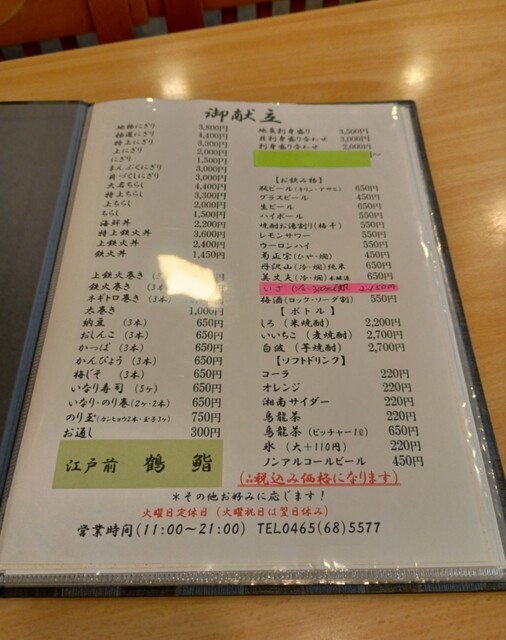 御献立
地物にぎり 3,800円
梅道にぎり 4,400円
特上にぎり 3,300円
上にぎり 2,000円
にぎり 1,500円
まんぷくにぎり 3,000円
貝づくしにぎり 3,000円
大名ちらし 4,400円
特上ちらし 3,300円
上ちらし 2,000円
ちらし 1,500円
海鮮丼 2,200円
特上鉄火丼 3,600円
上鉄火丼 2,400円
鉄火丼 1,450円
上鉄火巻き
鉄火巻き
ネギトロ巻き
太巻き 1,000円
納豆 (3本) 650円
おしんこ (3本) 650円
かっぱ (3本) 650円
かんぴょう (3本) 650円
梅じそ (3本) 650円
いなり寿司 (5ヶ) 650円
いなり・のり巻(2ヶ・2本) 650円
のり玉(カンピョウ2本・玉子3ヶ) 750円
お通し 300円
江戸前 鶴 鮨
地魚刺身盛り 3,500円
貝刺身盛り合わせ 3,000円
刺身盛り合わせ 2,000円
【お飲み物】
瓶ビール(キリン・アサヒ) 650円
グラスビール 450円
生ビール 650円
ハイボール 550円
焼酎お湯割り(梅干) 550円
レモンサワー 550円
ウーロンハイ 550円
菊正宗(ひや・燗) 450円
丹沢山(冷・燗)純米 650円
美丈夫(冷・燗)本醸造 650円
梅酒(ロック・ソーダ割) 550円
【ボトル】
しろ (米焼酎) 2,200円
いいちこ (麦焼酎) 2,700円
白波 (芋焼酎) 2,700円
【ソフトドリンク】
コーラ 220円
オレンジ 220円
湘南サイダー 220円
烏龍茶 220円
烏龍茶 (ピッチャー10) 650円
氷 (大+110円) 220円
ノンアルコールビール 450円
(△税込み価格になります)
*その他お好みに応じます!
火曜日定休日(火曜祝日は翌日休み)
営業時間(11:00~21:00) TEL0465(68)5577